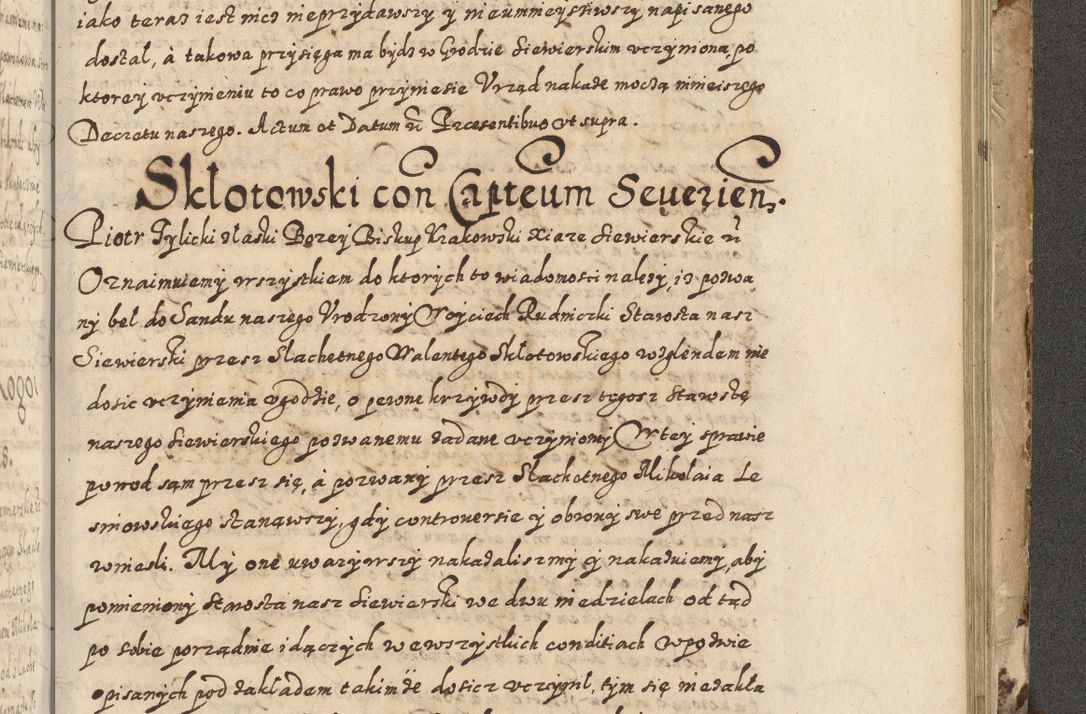 iako teraz iest nicz nieprzydawszy y nieummeyssiwszy napisanego
dostał, á takowa przysięga ma bydz w Grodzie Siewierskim vczyniona, po
ktorey vczynieniu to co prawo przyniesie Vrząd nakaże moczą ninieiszego
Decretu naszego. Actum et Datum Præsentibus vt supra.
Skłotowski con Capteum Seuerien.
Piotr Tylicki z łaski Bozey Biskup Krakowski Xiąze Siewierskie
Oznaimuiemy wszystkiem do ktorych to wiadomosci nalezy, iz pozwa
ny beł do Sandu naszego Vrodzony Woyciech Rudniczki Starosta nasz
Siewierski przesz Slachetnego Walentego Skłotowskiego wzglendem nie
dosic vczynienia vgodzie, o pewne krzywdy przesz tegosz Starostę
naszego Siewierskiego pozwanemu zadane vczyniony W tey sprawie
powod sam przesz się, á pozwany przesz Slachetnego Mikołaia Le
sniowskiego stanąwszy, gdy controuersie y obrony swe przed nasz
wniesli. My one vwazywszy nakazaliszmy y nakazuiemy, aby
pomieniony Starosta nasz Siewierski we dwu niedzielach od tąd
po sobie porządnie idączych we wszystkich conditiach w pozwie
opisanych pod zakładem takimże dosicz vczynił, tym się niezakła